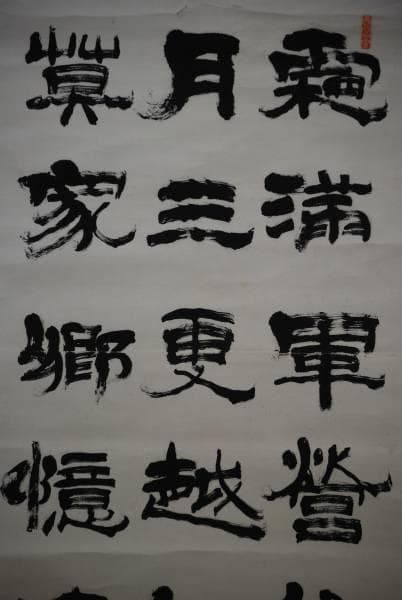 霜滿軍營
月三更越
莫家鄉憶